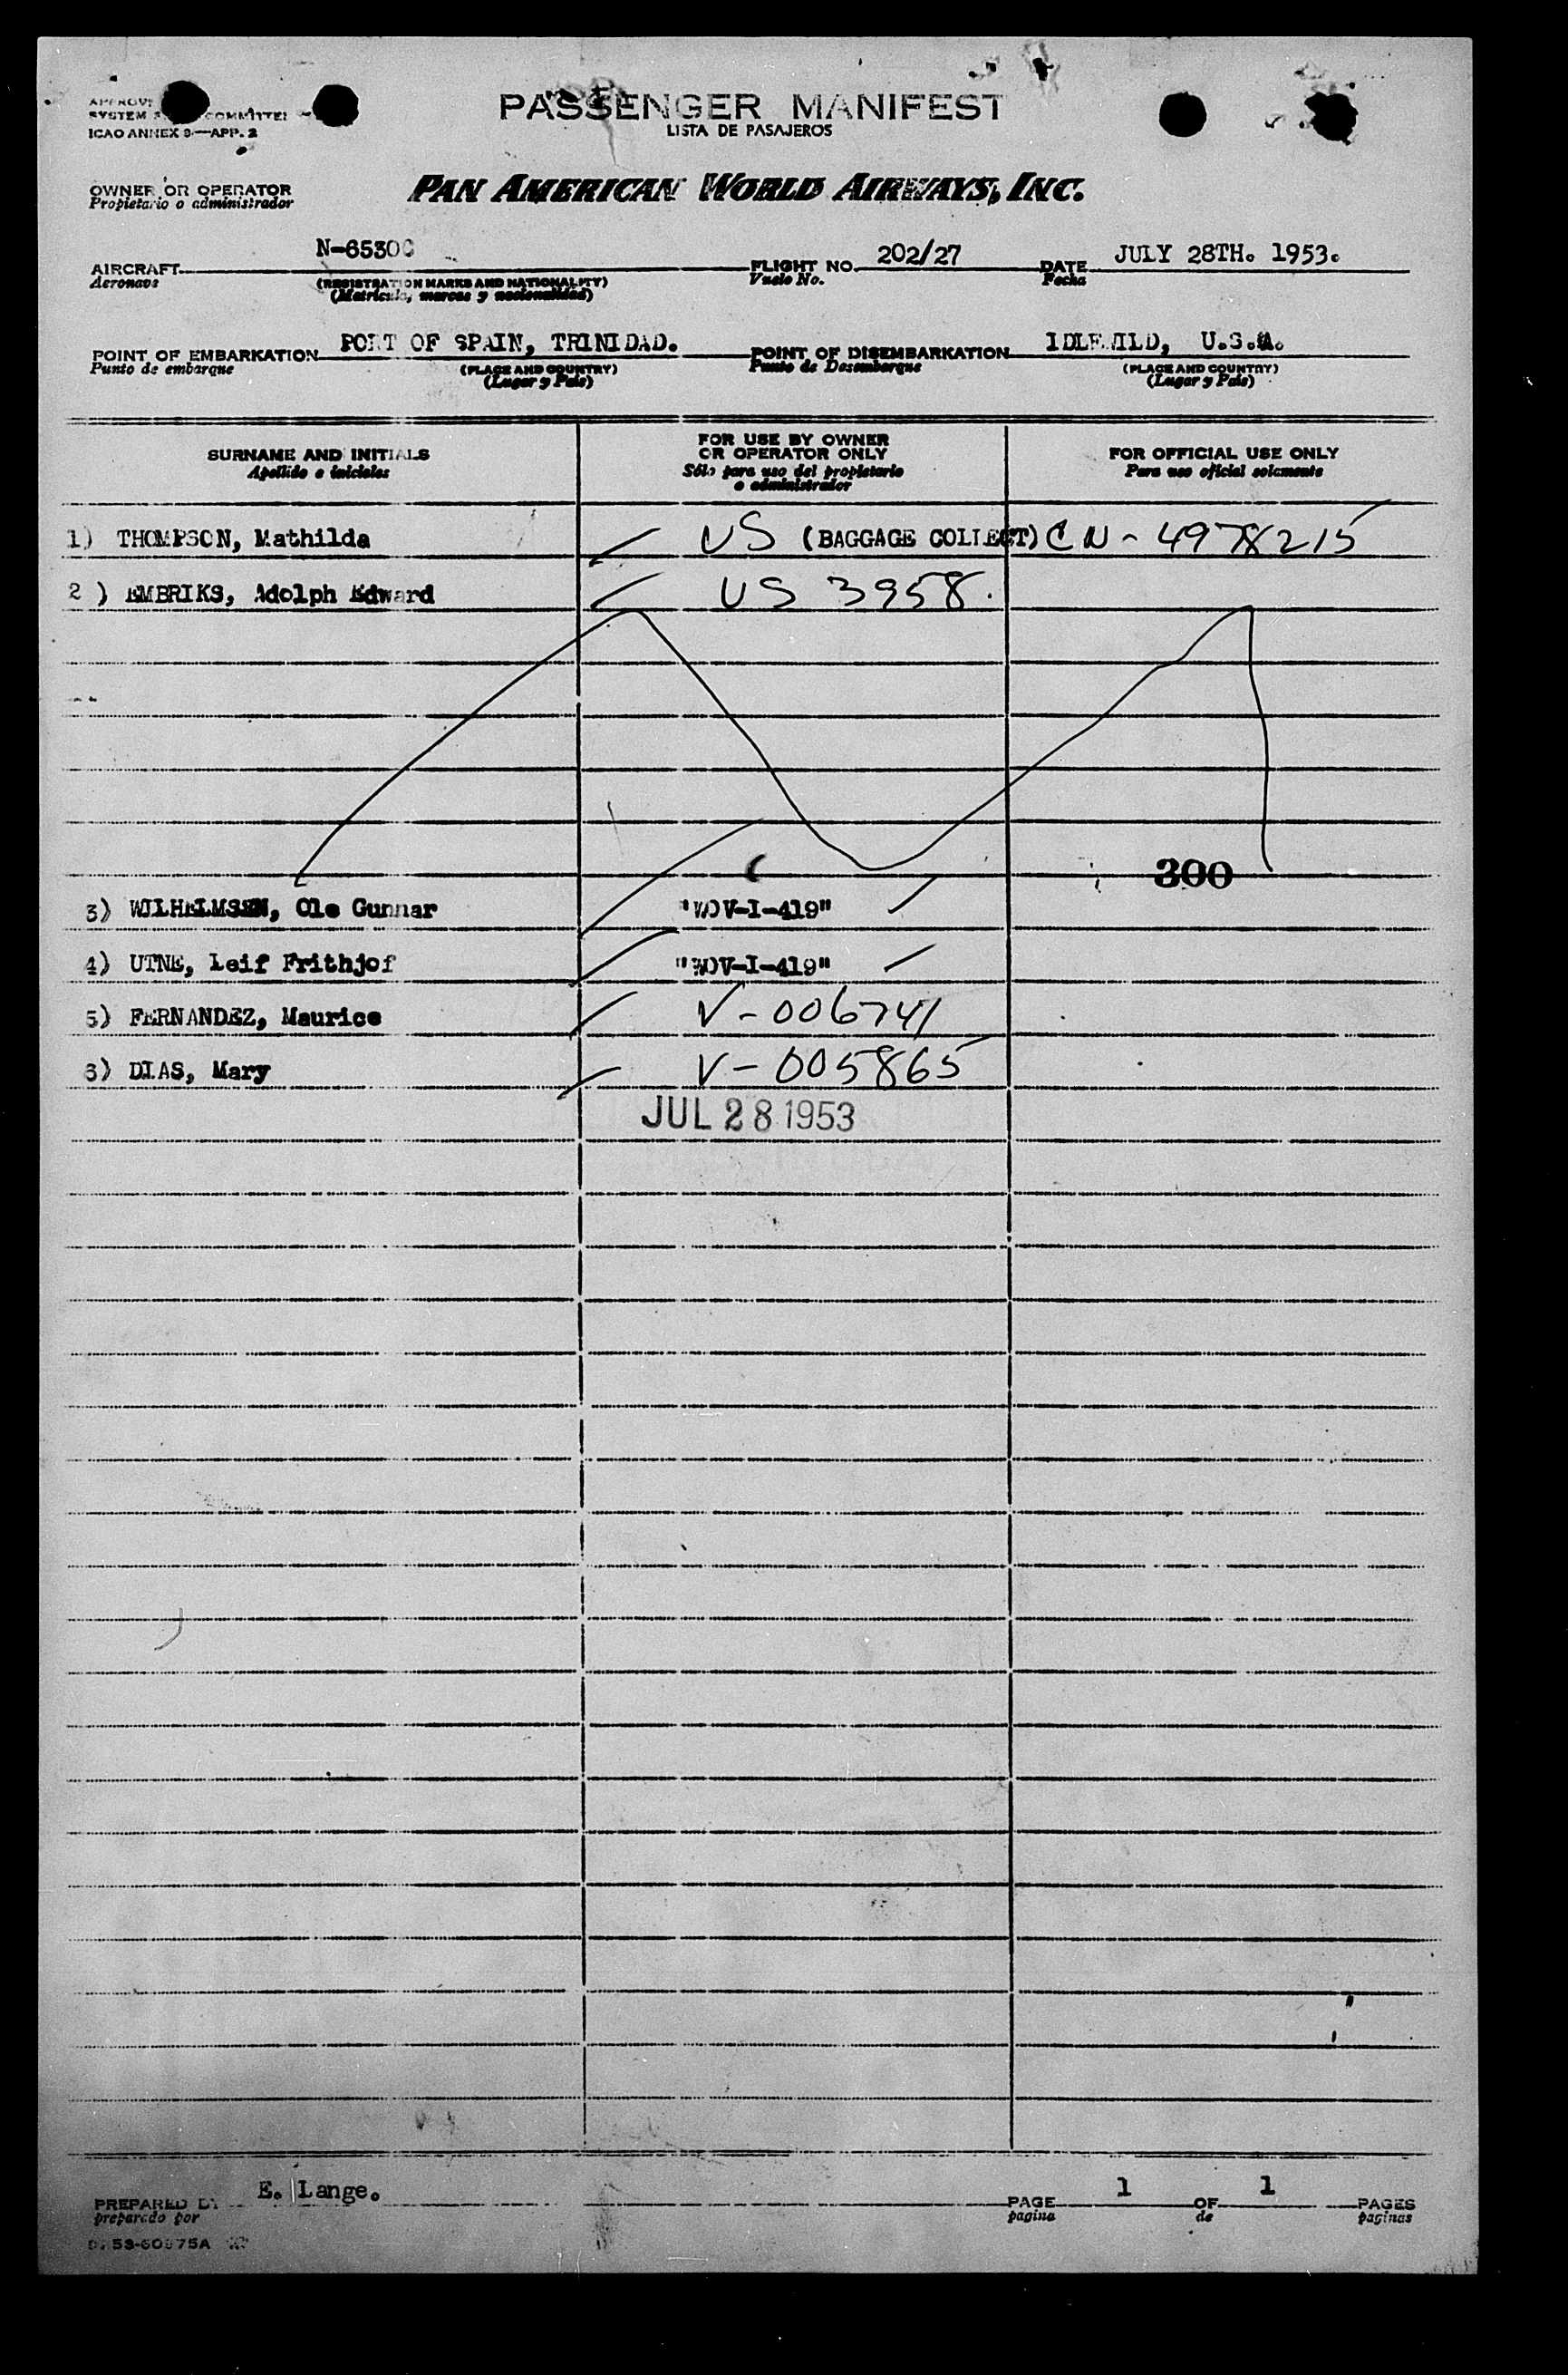 PASSENGER MANIFEST
LISTA DE PASAJEROS
SYSTEM COMMITTEE
ICAO ANNEX 9—APP. 2
OWNER OR OPERATOR
Propietario o administrador
PAN AMERICAN WORLD AIRWAYS, INC.
AIRCRAFT N-6530C FLIGHT NO. 202/27 DATE JULY 28TH. 1953.
Aeronave (REGISTRATION MARKS AND NATIONALITY) Vuelo No. Fecha
(Matricula, marcas y nacionalidad)
POINT OF EMBARKATION PORT OF SPAIN, TRINIDAD. POINT OF DISEMBARKATION IDLEWILD, U.S.A.
Punto de embarque (PLACE AND COUNTRY) Punto de Desembarque (PLACE AND COUNTRY)
(Lugar y Pais) (Lugar y Pais)
SURNAME AND INITIALS FOR USE BY OWNER OR OPERATOR ONLY FOR OFFICIAL USE ONLY
Apellido e iniciales Sólo para uso del propietario o administrador Para uso oficial solamente
1) THOMPSON, Mathilda US (BAGGAGE COLLECT) CN - 4978215
2 ) EMBRIKS, Adolph Edward US 3958.
300
3) WILHELMSEN, Ole Gunnar "WOV-I-419"
4) UTNE, Leif Frithjof "WOV-I-419"
5) FERNANDEZ, Maurice V - 006741
6) DIAS, Mary V - 005865
JUL 28 1953
PREPARED BY E. Lange. PAGE 1 OF 1 PAGES
preparado por pagina de paginas